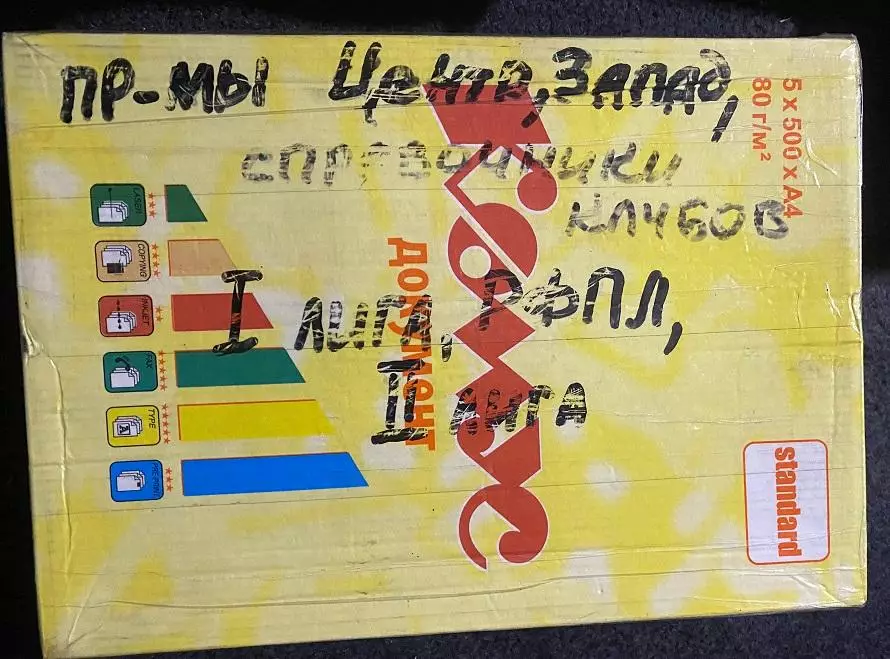 пр-мы Центр, Запад,
справочники
клубов
I лига, РФПЛ,
II лига
5 x 500 x A4
80 г/м²
Комус
документ
standard
LASER
COPYING
INKJET
FAX
TYPE
PRE-PRINT